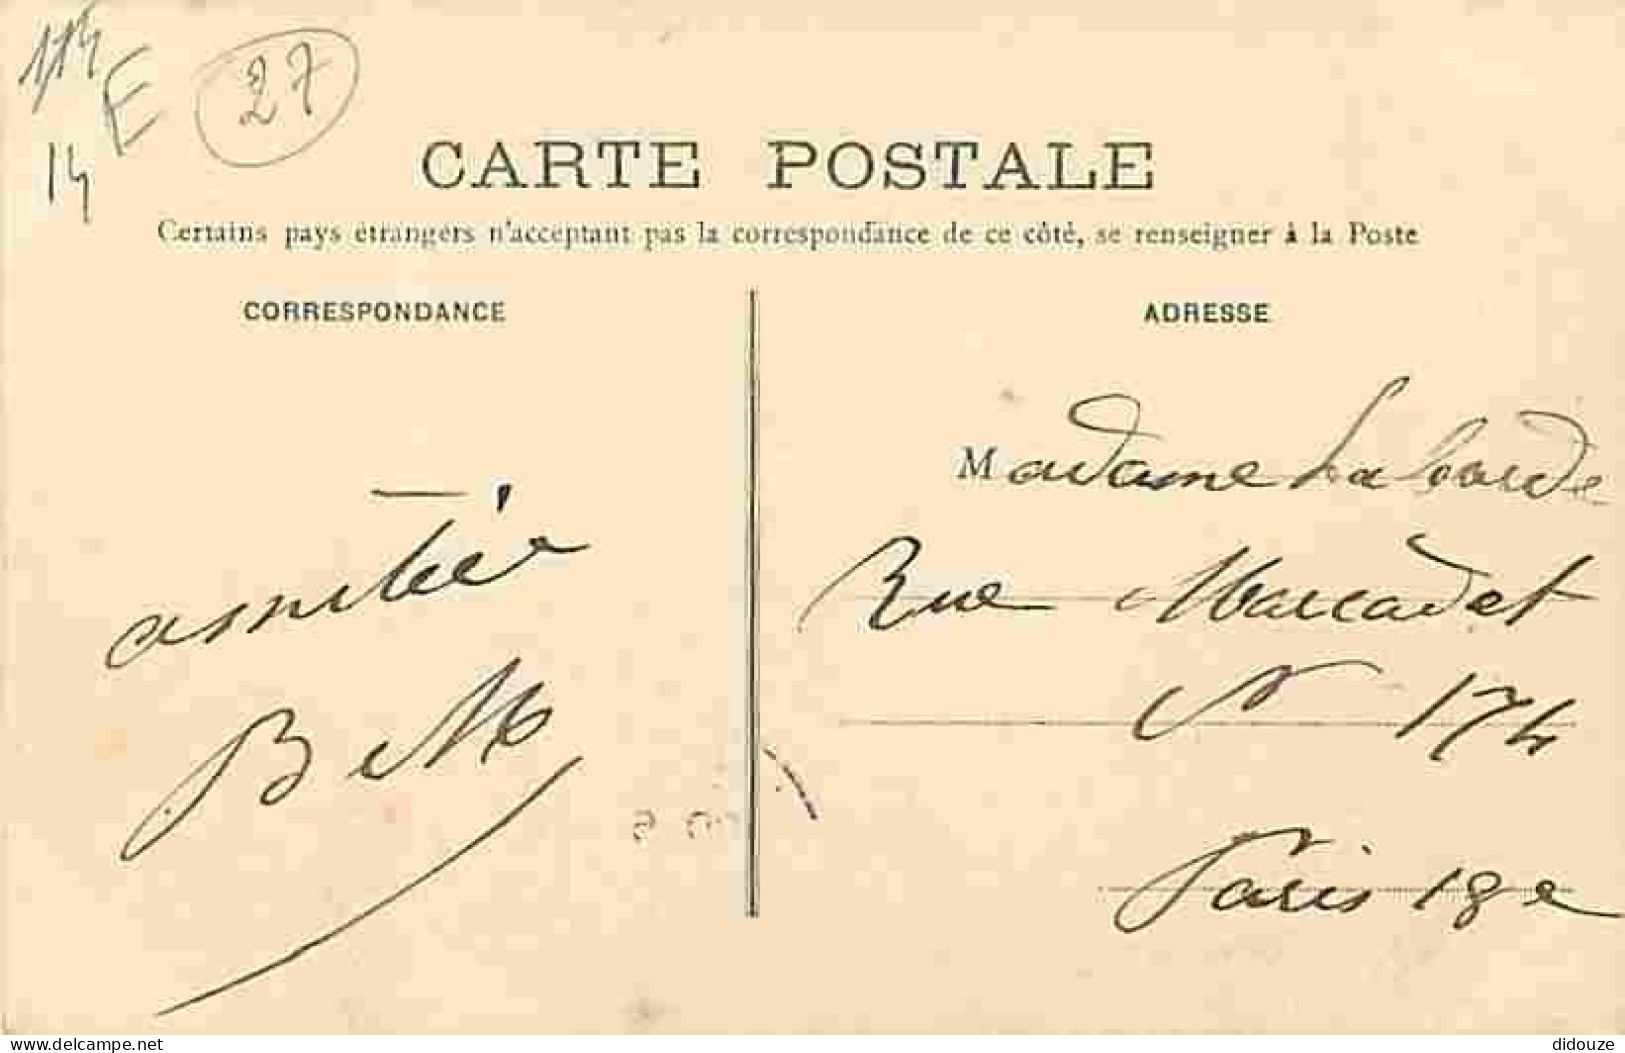 114
E
27
14
CARTE POSTALE
Certains pays étrangers n'acceptant pas la correspondance de ce côté, se renseigner à la Poste
CORRESPONDANCE
ADRESSE
Madame Laborde
Rue Marcadet
N° 174
Paris 18e
amitié
B
delcampe.net
didouze